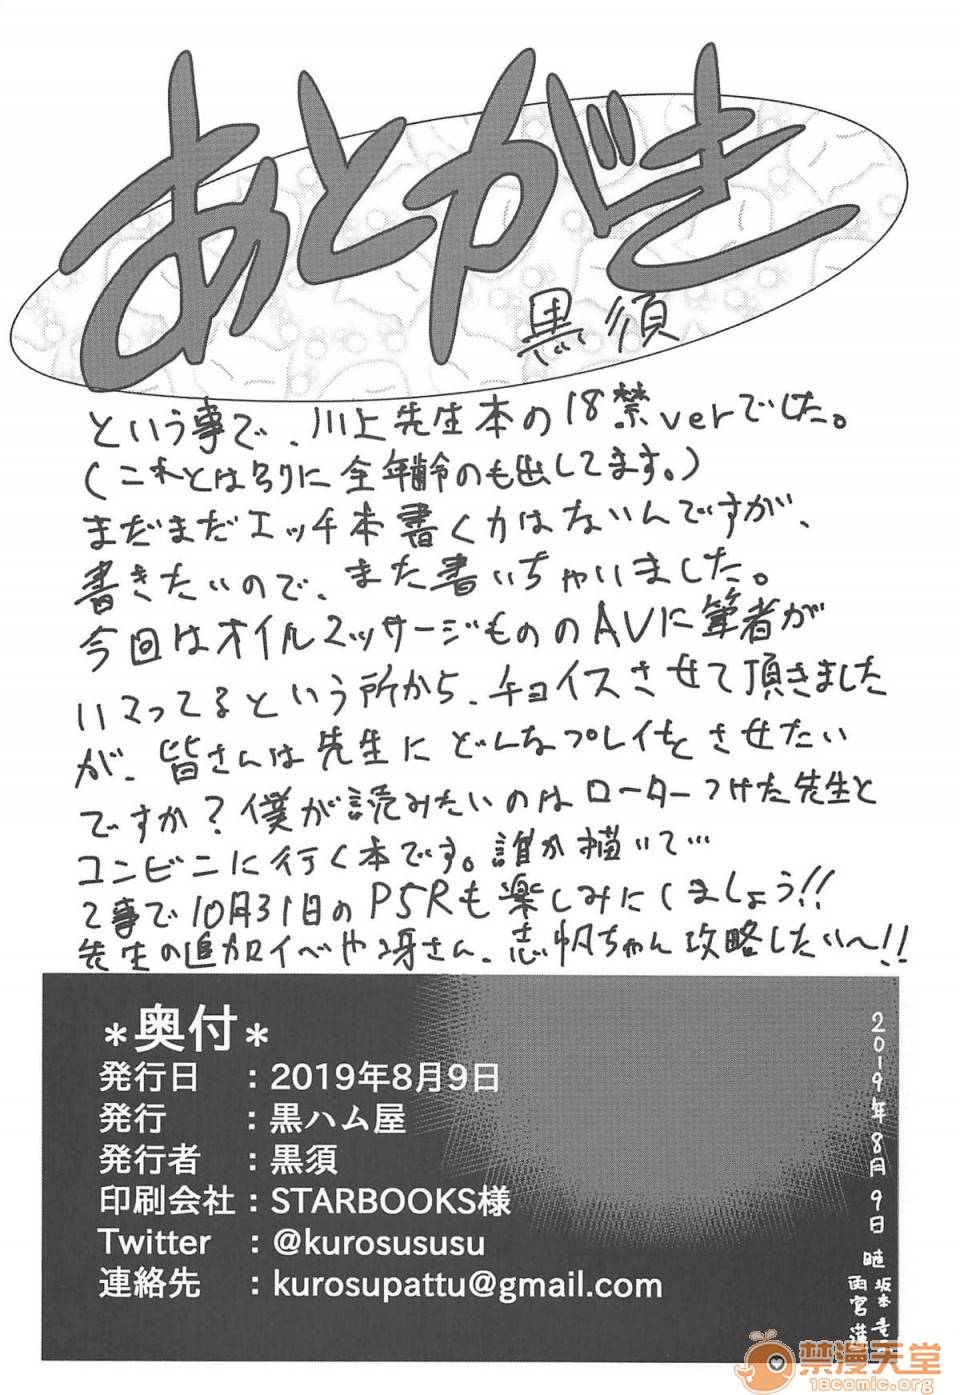 あとがき
黒須
という事で、川上先生本の18禁verでした。
(これとは別に全年齢のも出してます。)
まだまだエッチ本書く力はないんですが、
書きたいので、また書いちゃいました。
今回はオイルマッサージもののAVに筆者が
ハマってるという所から、チョイスさせて頂きました
が、皆さんは先生にどんなプレイをさせたい
ですか？僕が読みたいのはローターつけた先生と
コンビニに行く本です。誰か描いて…
て事で10月31日のP5Rも楽しみにしましょう!!
先生の追加イベや冴さん、志帆ちゃん攻略したい〜!!
*奥付*
発行日　：2019年8月9日
発行　　：黒ハム屋
発行者　：黒須
印刷会社：STARBOOKS様
Twitter　：@kurosususu
連絡先　：kurosupattu@gmail.com
2019年8月9日
坂本竜
雨宮蓮
禁漫天堂
18comic.org